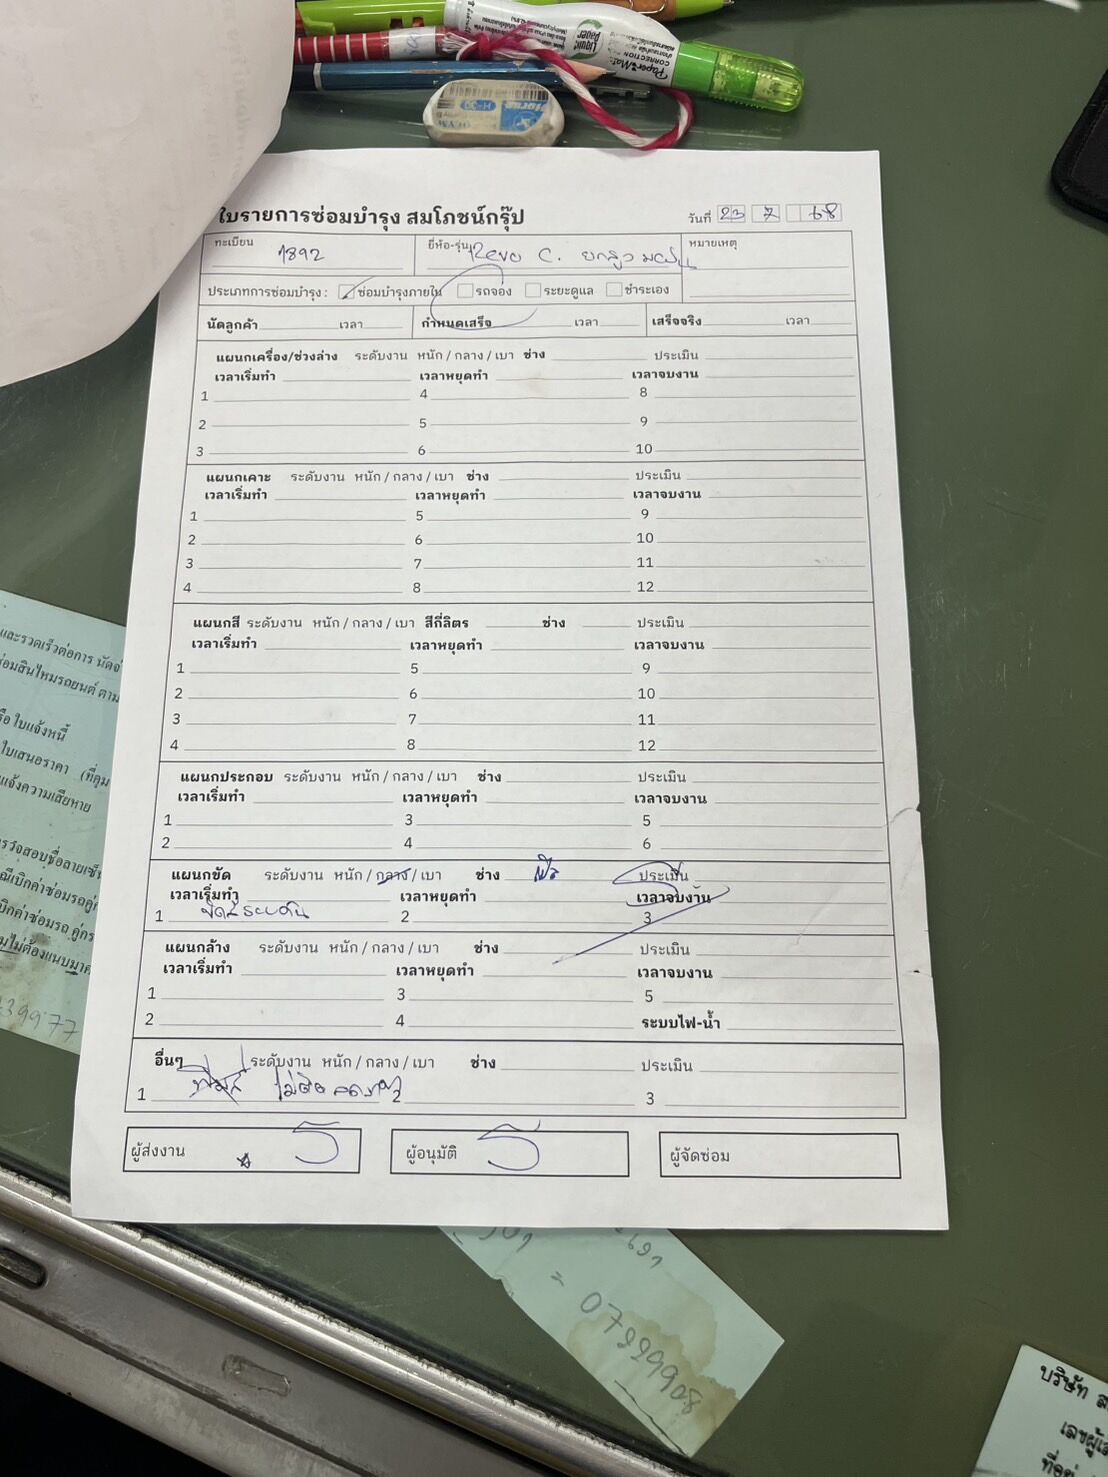 Liquid Paper
PaperMate
CORRECTION
H-30
ใบรายการซ่อมบำรุง สมโภชน์กรุ๊ป
วันที่ 23 7 68
ทะเบียน 1892
ยี่ห้อ-รุ่น Revo C.
หมายเหตุ
ประเภทการซ่อมบำรุง : ซ่อมบำรุงภายใน รถจอง ระยะดูแล ชำระเอง
นัดลูกค้า เวลา กำหนดเสร็จ เวลา เสร็จจริง เวลา
แผนกเครื่อง/ช่วงล่าง ระดับงาน หนัก / กลาง / เบา ช่าง ประเมิน
เวลาเริ่มทำ เวลาหยุดทำ เวลาจบงาน
1 4 8
2 5 9
3 6 10
แผนกเคาะ ระดับงาน หนัก / กลาง / เบา ช่าง ประเมิน
เวลาเริ่มทำ เวลาหยุดทำ เวลาจบงาน
1 5 9
2 6 10
3 7 11
4 8 12
แผนกสี ระดับงาน หนัก / กลาง / เบา สีกี่ลิตร ช่าง ประเมิน
เวลาเริ่มทำ เวลาหยุดทำ เวลาจบงาน
1 5 9
2 6 10
3 7 11
4 8 12
แผนกประกอบ ระดับงาน หนัก / กลาง / เบา ช่าง ประเมิน
เวลาเริ่มทำ เวลาหยุดทำ เวลาจบงาน
1 3 5
2 4 6
แผนกขัด ระดับงาน หนัก / กลาง / เบา ช่าง ประเมิน
เวลาเริ่มทำ เวลาหยุดทำ เวลาจบงาน
1 2 3
แผนกล้าง ระดับงาน หนัก / กลาง / เบา ช่าง ประเมิน
เวลาเริ่มทำ เวลาหยุดทำ เวลาจบงาน
1 3 5
2 4 ระบบไฟ-น้ำ
อื่นๆ ระดับงาน หนัก / กลาง / เบา ช่าง ประเมิน
1 2 3
ผู้ส่งงาน ผู้อนุมัติ ผู้จัดซ่อม
และรวดเร็วต่อการ นัด
ซ่อมสินไหมรถยนต์ ตาม
ใบแจ้งหนี้
ใบเสนอราคา
แจ้งความเสียหาย
39977
บริษัท